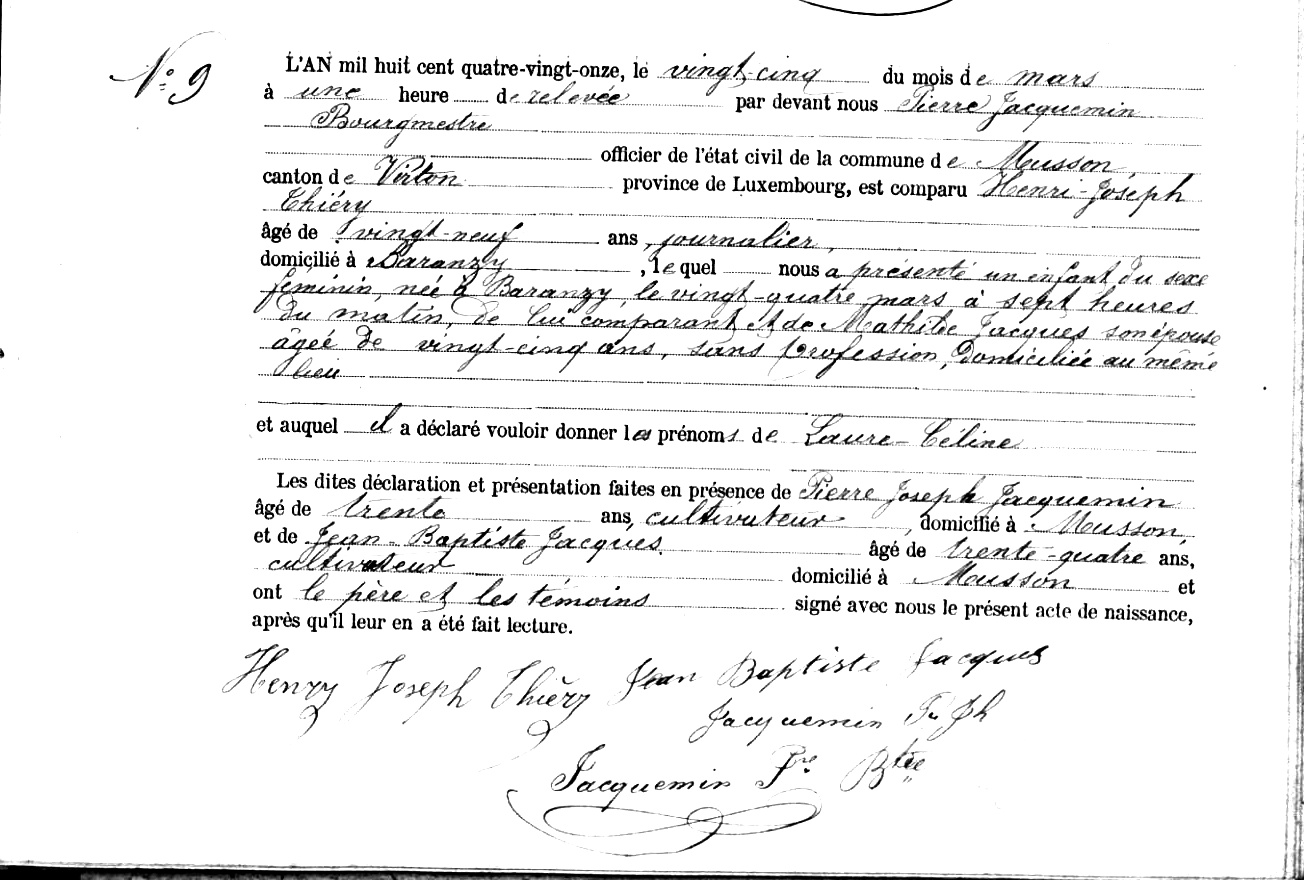 N° 9
L'AN mil huit cent quatre-vingt-onze, le vingt-cinq du mois de mars
à une heure de relevée par devant nous Pierre Jacquemin
Bourgmestre
officier de l'état civil de la commune de Musson
canton de Virton province de Luxembourg, est comparu Henri-Joseph
Thiéry
âgé de vingt-neuf ans, journalier,
domicilié à Baranzy, lequel nous a présenté un enfant du sexe
féminin, née à Baranzy, le vingt-quatre mars à sept heures
du matin, de lui comparant et de Mathilde Jacques son épouse
âgée de vingt-cinq ans, sans profession, domiciliée au même
lieu
et auquel il a déclaré vouloir donner les prénoms de Laure-Céline
Les dites déclaration et présentation faites en présence de Pierre Joseph Jacquemin
âgé de trente ans, cultivateur, domicilié à Musson,
et de Jean-Baptiste Jacques âgé de trente-quatre ans,
cultivateur domicilié à Musson et
ont le père et les témoins signé avec nous le présent acte de naissance,
après qu'il leur en a été fait lecture.
Henry Joseph Thiéry Jean Baptiste Jacques
Jacquemin Pre Jh
Jacquemin Pre Btte